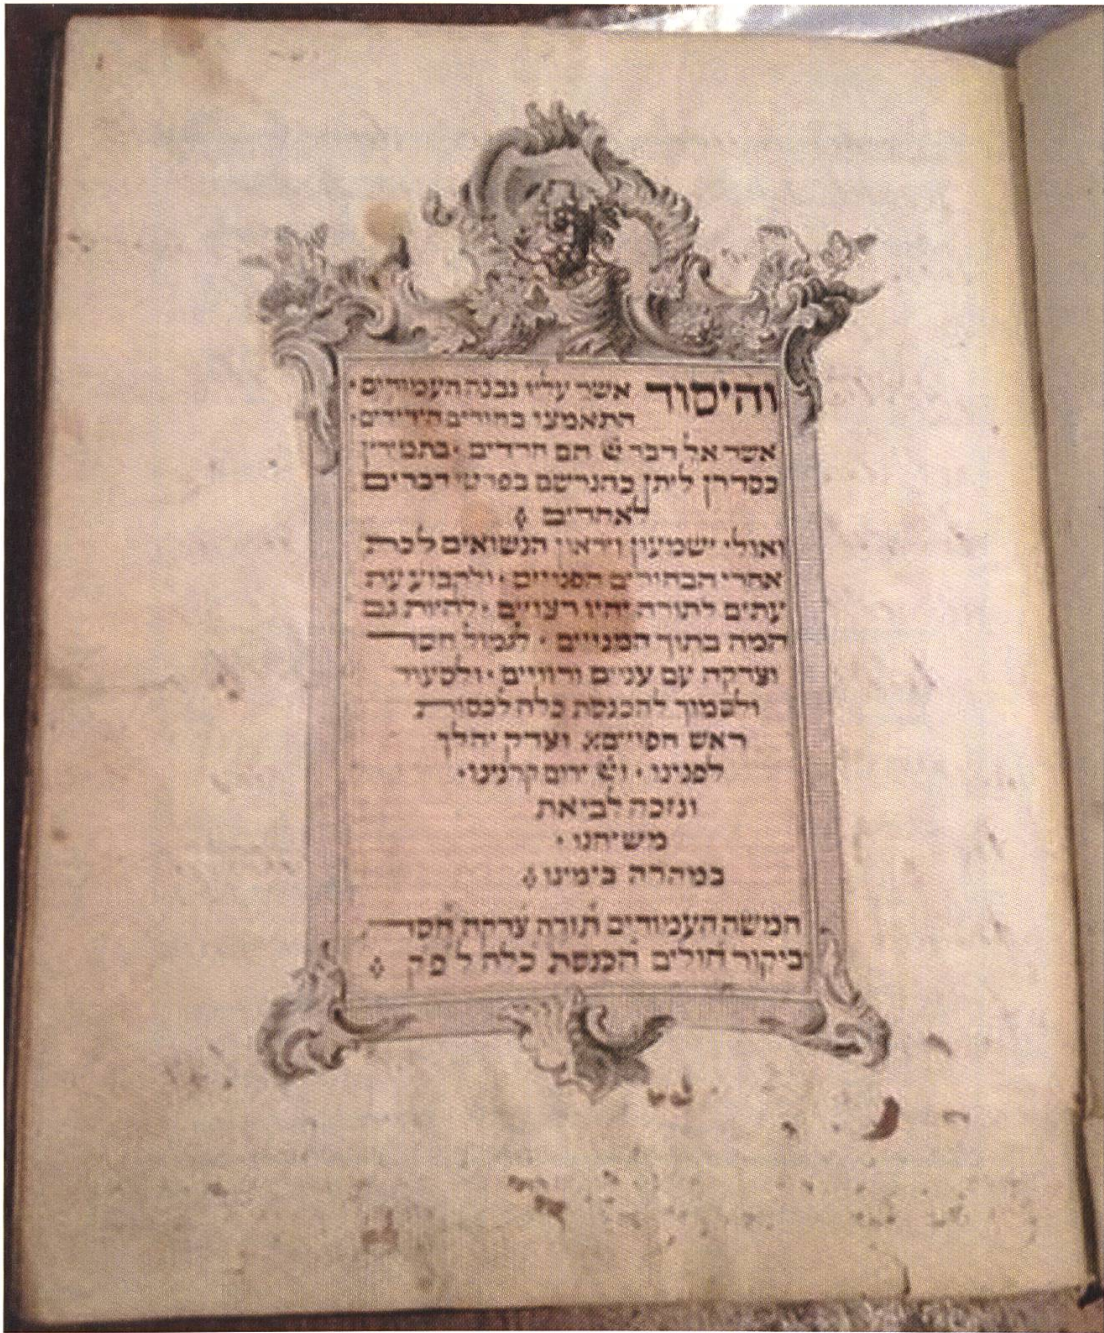 והיסוד אשר עליו נבנה העמודים·
התאמצו בחורים הידידים·
אשר אל דבר ה' הם חרדים · בתמידין
כסדרן ליתן כהנרשם בפרטי דברים
לאחרים
ואולי ישמעון ויראון הנשואים ללכת
אחרי הבחורים הפנויים · ולקבוע עת
עתים לתורה יהיו רצויים · להיות גם
המה בתוך המנויים · לגמול חסד
וצדקה עם עניים ורוויים · ולסעוד
ולסמוך להכנסת כלה לכסות
ראש וצדק יהלך
לפנינו · ירום קרנינו·
ונזכה לביאת
משיחנו ·
במהרה בימינו
חמשה העמודים תורה צדקה חסד
ביקור חולים הכנסת כלה ל פ"ק